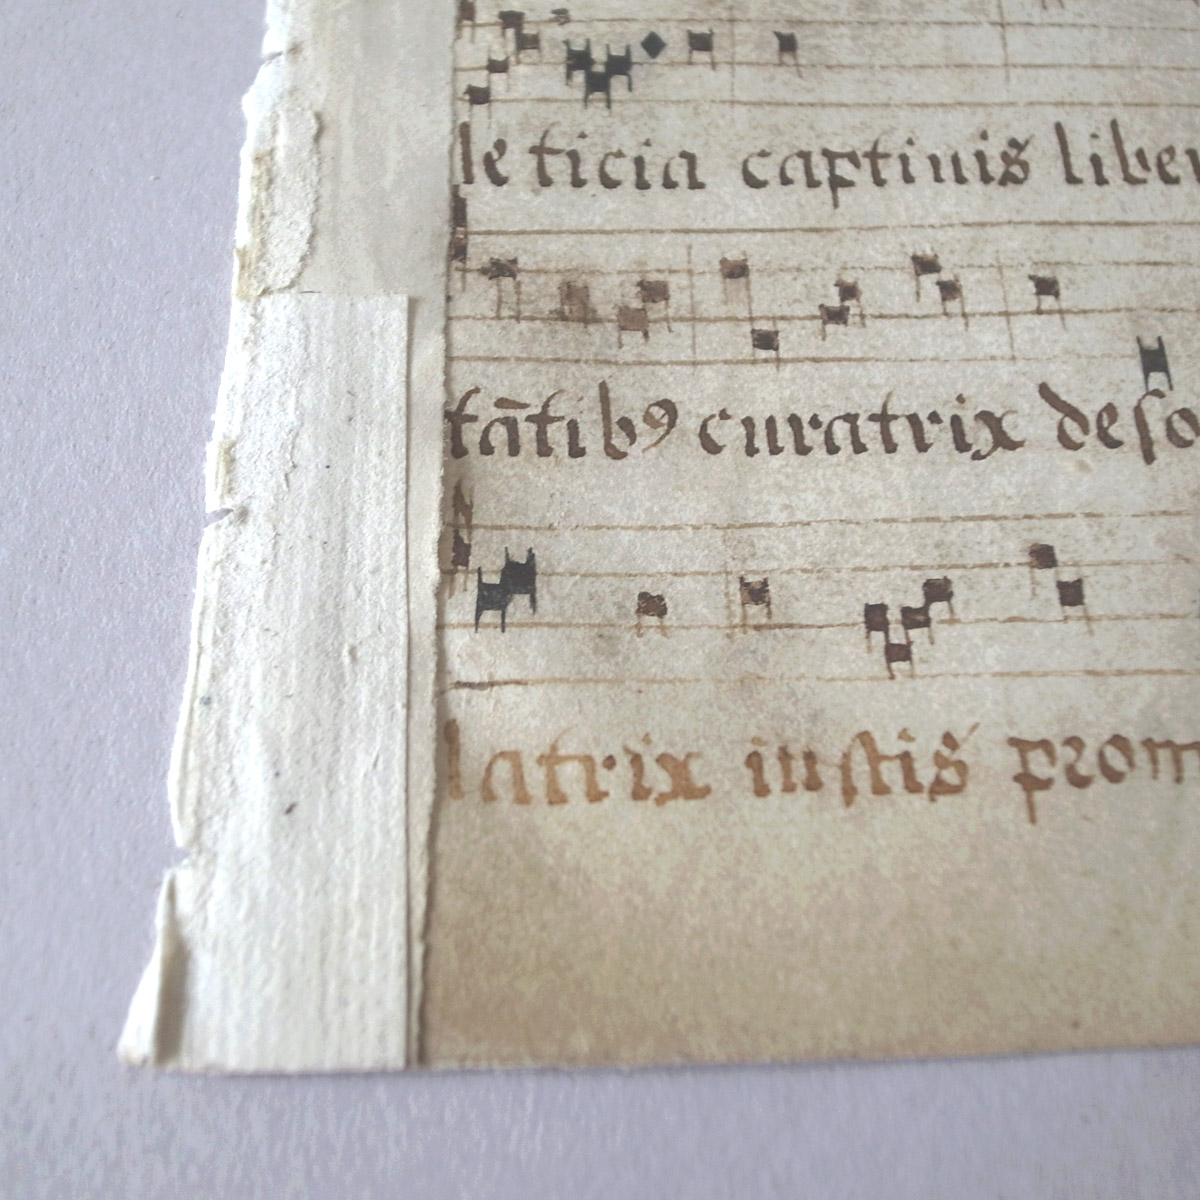 leticia captiuis liber
tātibꝯ curatrix deſo
latrix iuſtis prom